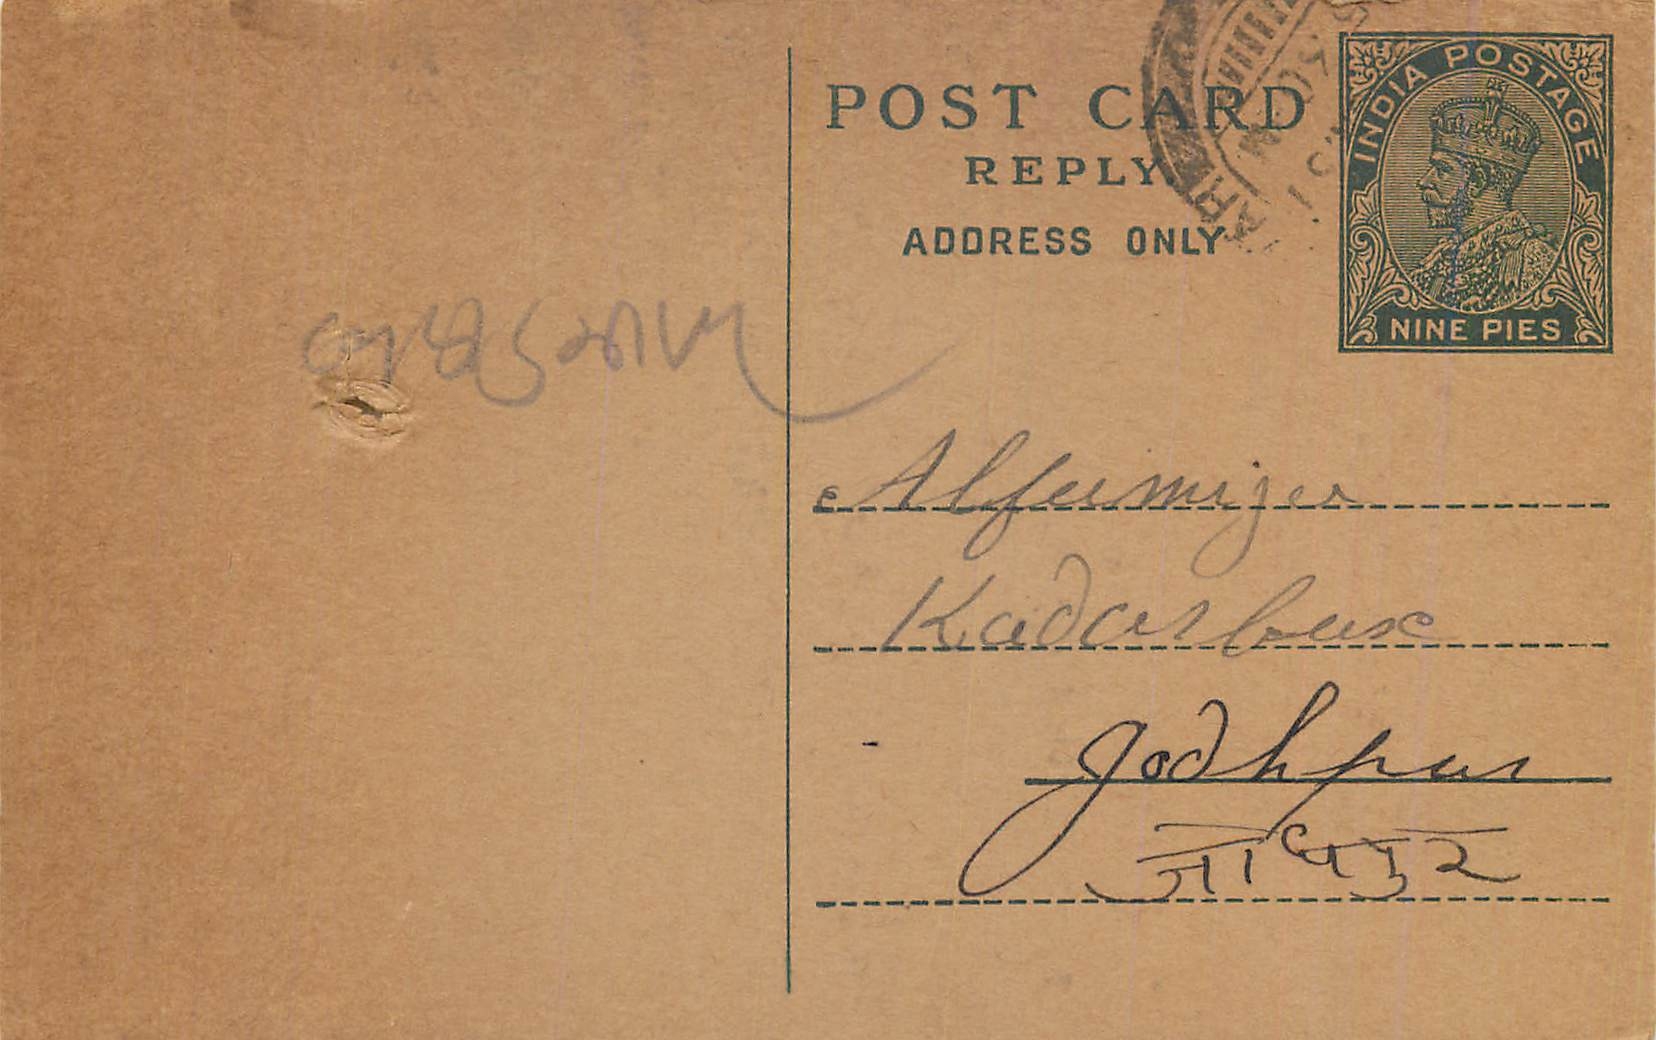 POST CARD
REPLY.
ADDRESS ONLY
INDIA POSTAGE
NINE PIES
Kadarbux
Jodhpur
जोधपुर